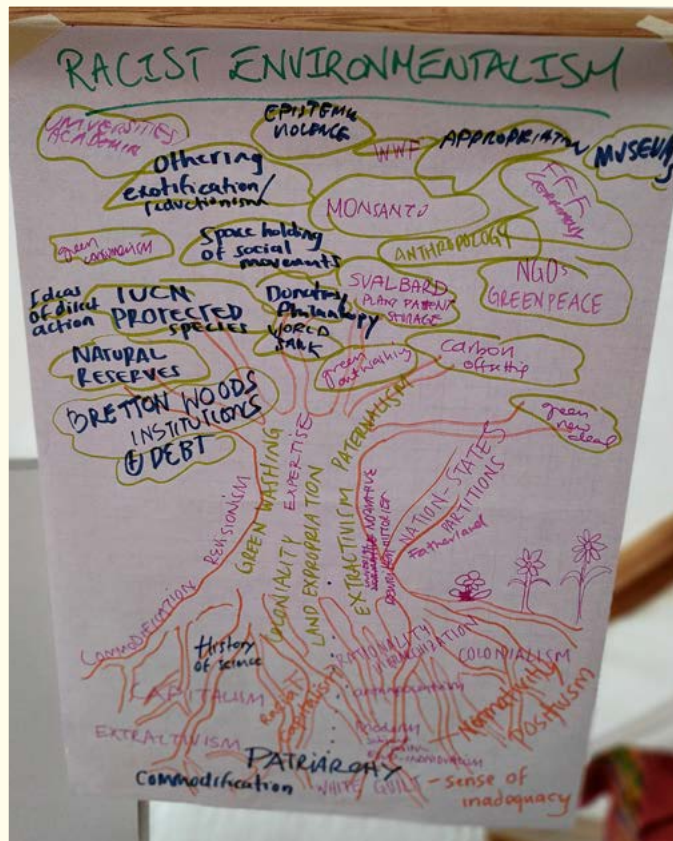 RACIST ENVIRONMENTALISM
UNIVERSITIES
ACADEMIA
EPISTEMIC
VIOLENCE
WWF
APPROPRIATION
MUSEUMS
Othering
exotification/
reductionism
MONSANTO
FFF
green
consumerism
Space holding
of social
movements
ANTHROPOLOGY
NGOs
GREENPEACE
Ideas
of direct
action
IUCN
PROTECTED
SPECIES
Donations/
Philanthropy
WORLD
BANK
SVALBARD
PLANT PATENT
STORAGE
NATURAL
RESERVES
green
washing
Carbon
offsetting
BRETTON WOODS
INSTITUTIONS
+ DEBT
green
new
deal
REVISIONISM
GREEN WASHING
COLONIALITY
EXPERTISE
LAND EXPROPRIATION
EXTRACTIVISM PATERNALISM
NORMATIVE
HISTORIES
NATION-STATES
PARTITIONS
Fatherland
COMMODIFICATION
History
of science
RATIONALITY
HIERARCHIZATION
COLONIALISM
CAPITALISM
Racial
Capitalism
Normativity
Positivism
EXTRACTIVISM
PATRIARCHY
Commodification
WHITE GUILT - sense of
inadequacy